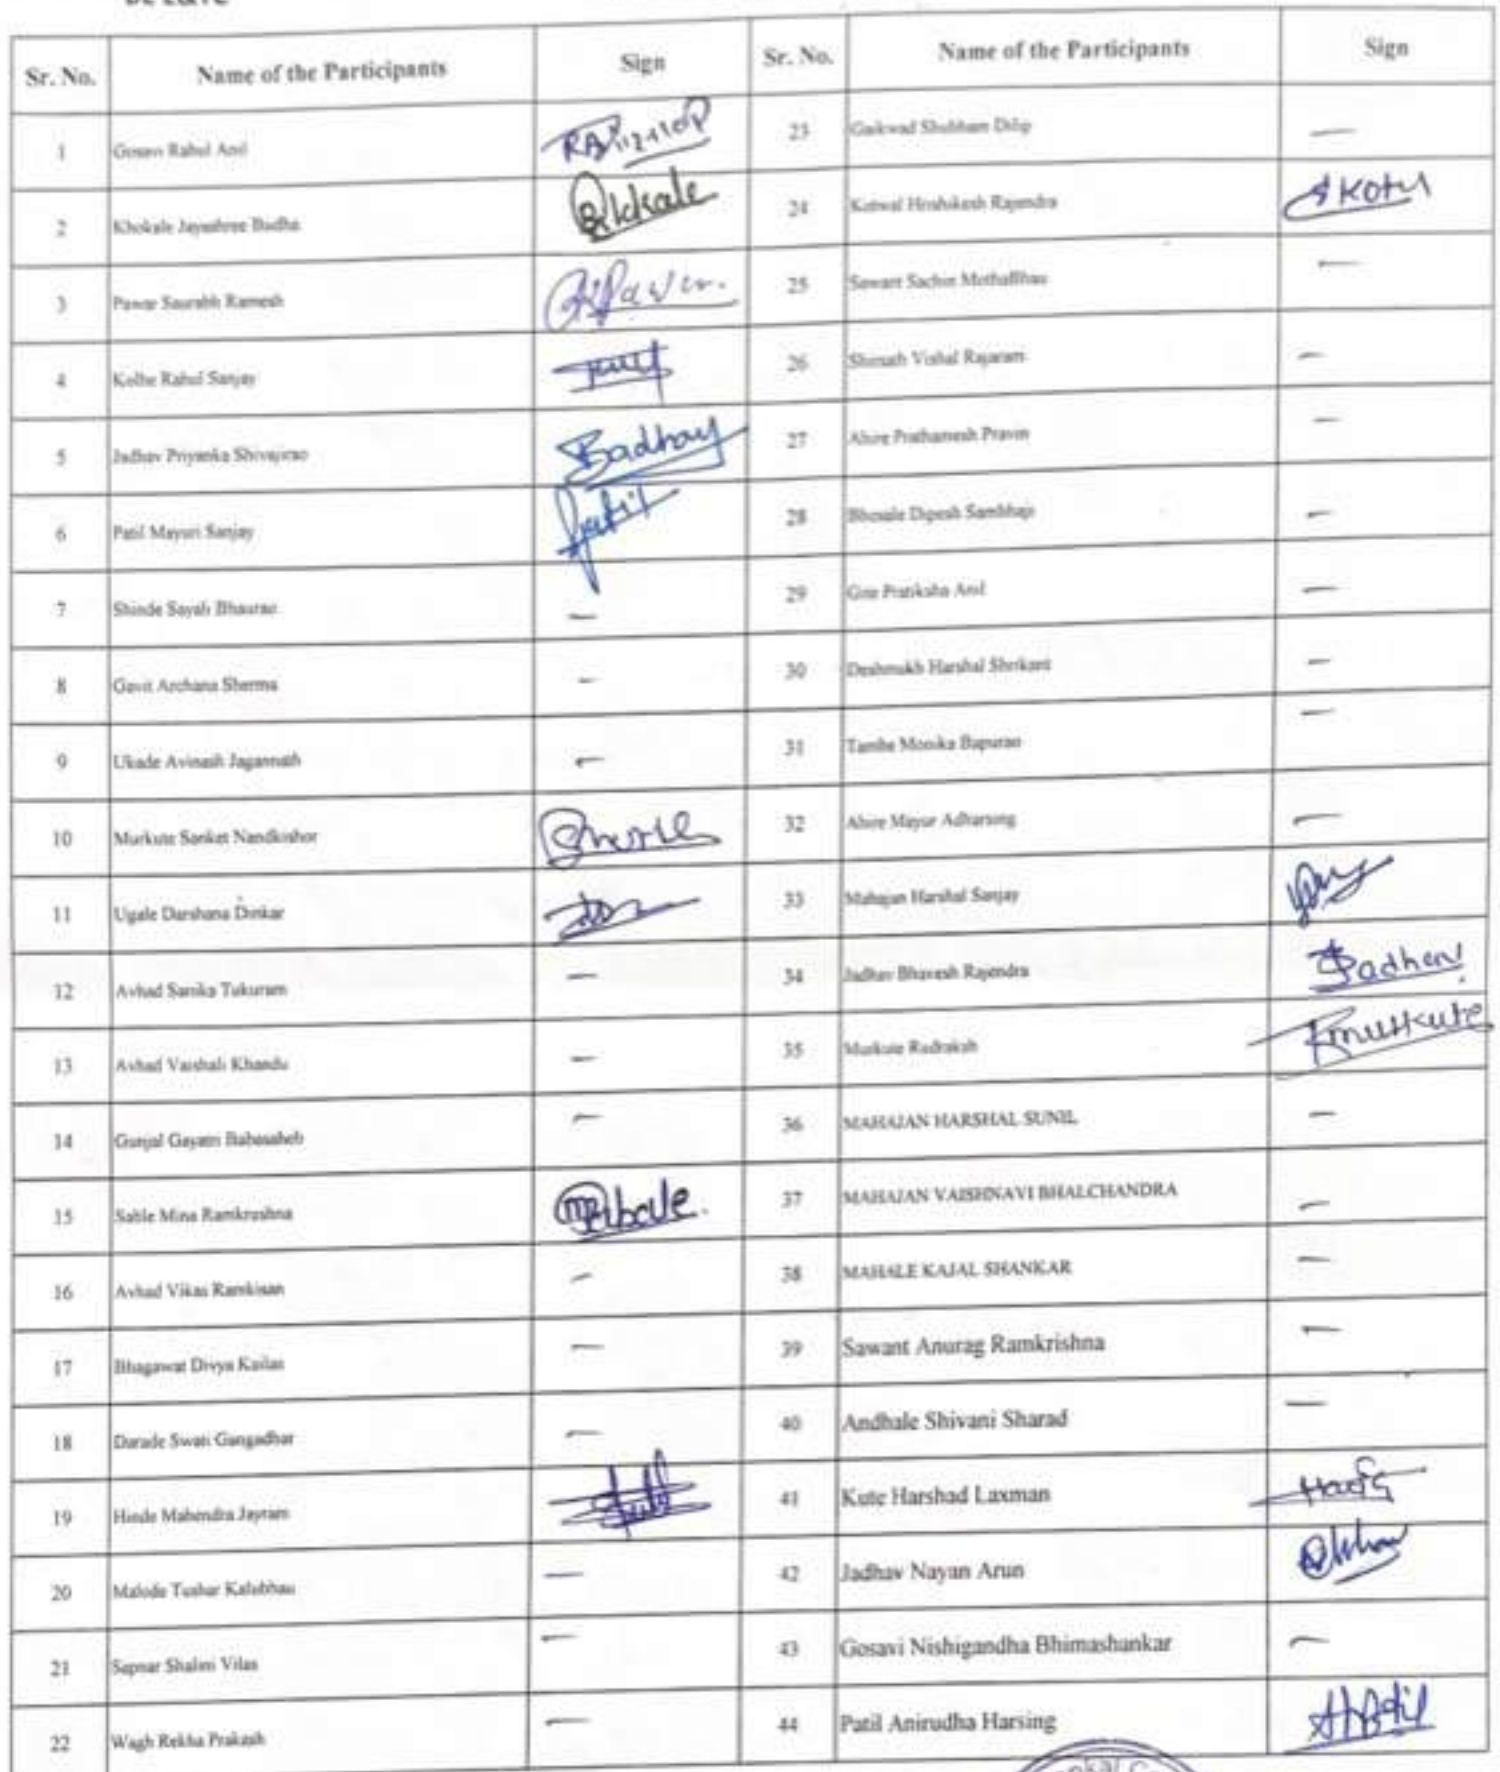 BE E&TC
Sr. No. Name of the Participants Sign Sr. No. Name of the Participants Sign
1 Gosavi Rahul Anil 23 Gaikwad Shubham Dilip —
2 Khokale Jayashree Budha Bkkale 24 Kotwal Hrishikesh Rajendra
3 Pawar Saurabh Ramesh 25 Sawant Sachin MothaBhau —
4 Kolhe Rahul Sanjay 26 Shirsath Vishal Rajaram —
5 Jadhav Priyanka Shivajirao 27 Ahire Prathamesh Pravin —
6 Patil Mayuri Sanjay 28 Bhosale Dipesh Sambhaji —
7 Shinde Sayali Bhaurao — 29 Gite Pratiksha Anil —
8 Gavit Archana Sherma — 30 Deshmukh Harshal Shrikant —
9 Ukade Avinash Jagannath — 31 Tambe Monika Bapurao —
10 Murkute Sanket Nandkishor 32 Ahire Mayur Adharsing —
11 Ugale Darshana Dinkar 33 Mahajan Harshal Sanjay
12 Avhad Sanika Tukaram — 34 Jadhav Bhavesh Rajendra
13 Avhad Vaishali Khandu — 35 Murkute Rudraksh
14 Gunjal Gayatri Babasaheb — 36 MAHAJAN HARSHAL SUNIL —
15 Sable Mina Ramkrushna 37 MAHAJAN VAISHNAVI BHALCHANDRA —
16 Avhad Vikas Ramkisan — 38 MAHALE KAJAL SHANKAR —
17 Bhagawat Divya Kailas — 39 Sawant Anurag Ramkrishna —
18 Darade Swati Gangadhar — 40 Andhale Shivani Sharad —
19 Hinde Mahendra Jayram 41 Kute Harshad Laxman
20 Malode Tushar Kalubhau — 42 Jadhav Nayan Arun
21 Sapnar Shalini Vilas — 43 Gosavi Nishigandha Bhimashankar —
22 Wagh Rekha Prakash — 44 Patil Anirudha Harsing